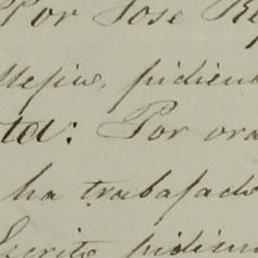 Por Jose
pidien
ta: Por ora
ha trabajado
Escrito pidien